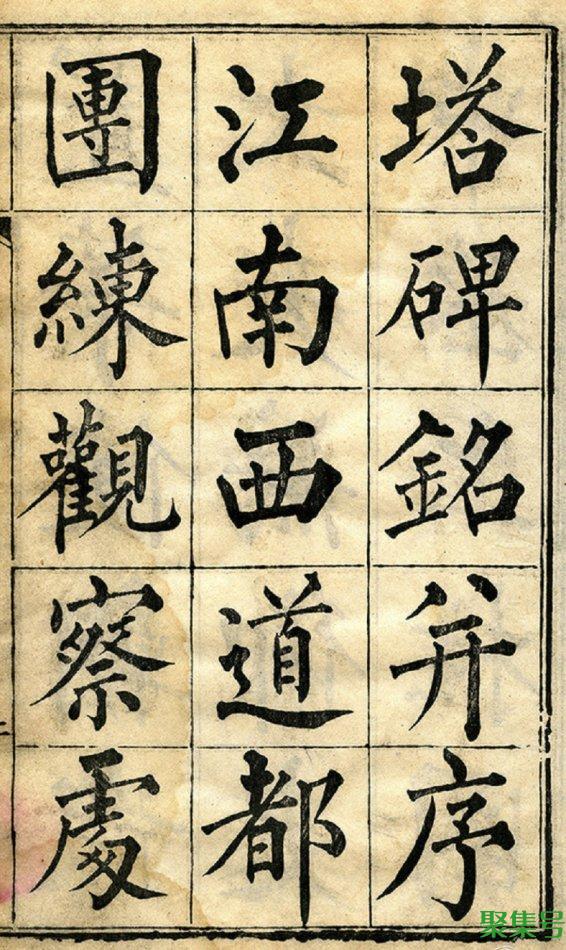 塔碑銘并序
江南西道都
團練觀察處
聚集号